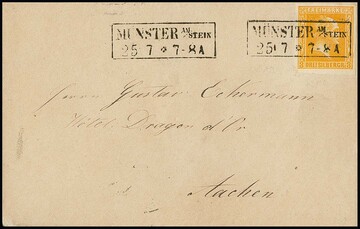 MÜNSTER AM/STEIN
25 7 7-8A
MÜNSTER AM/STEIN
25 7 7-8A
FREIMARKE
3 SILBERGR.
Herrn Gustav Eckermann
Hôtel Dragon d'Or
Aachen